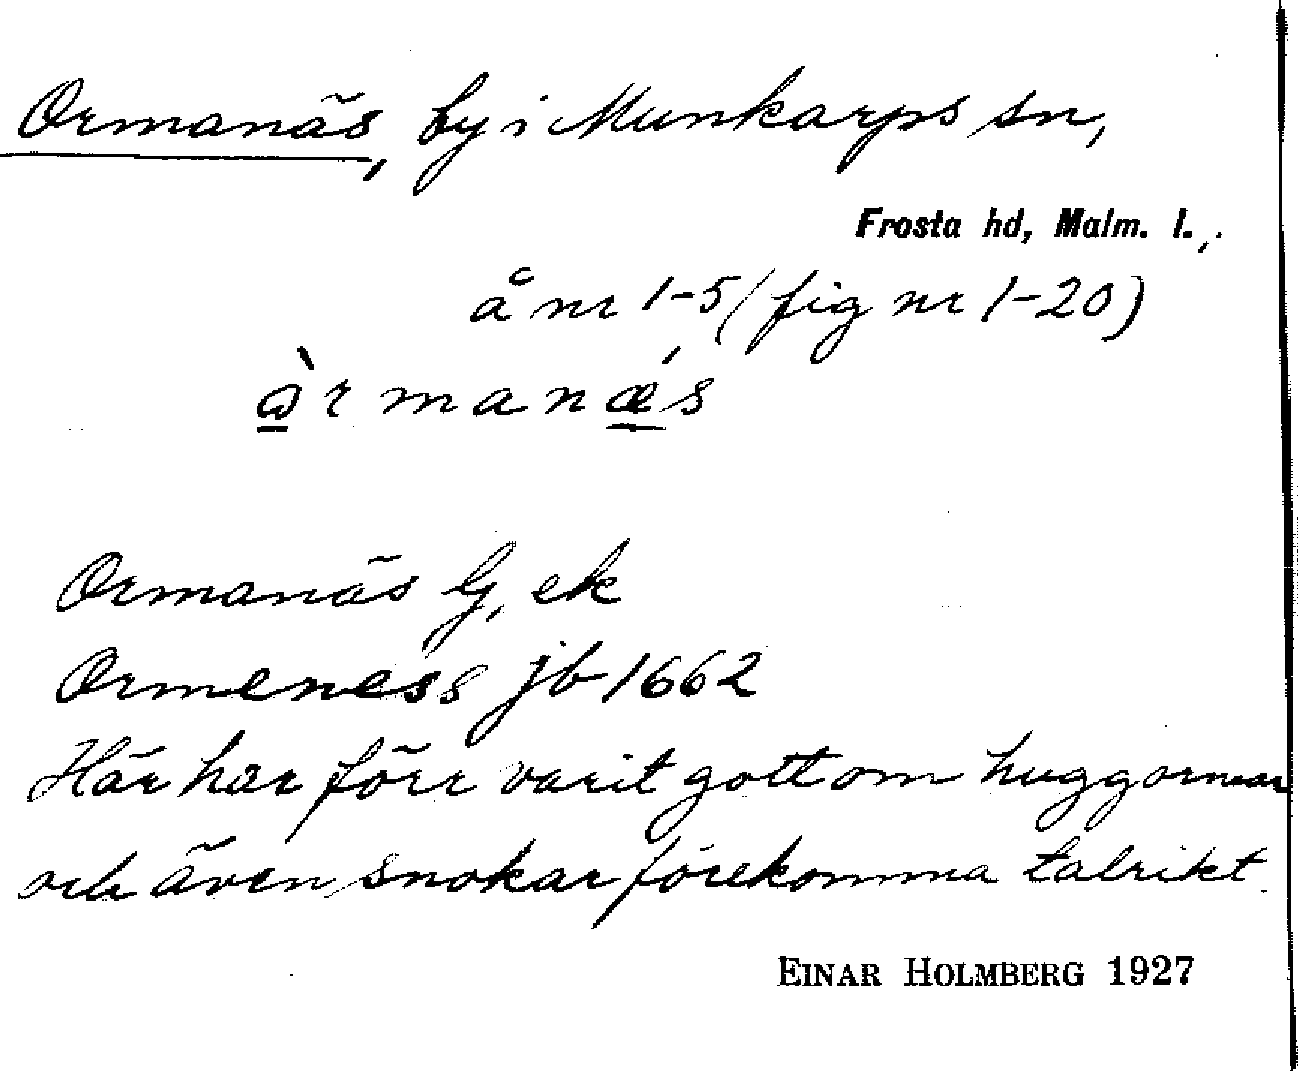 Ormanäs, by i Munkarps sn,
Frosta hd, Malm. l.,
å nr 1-5 (fig nr 1-20)
Ormanäs G, ek
Ormeness jb 1662
Här har förr varit gott om huggormar
och även snokar förekomma talrikt.
EINAR HOLMBERG 1927